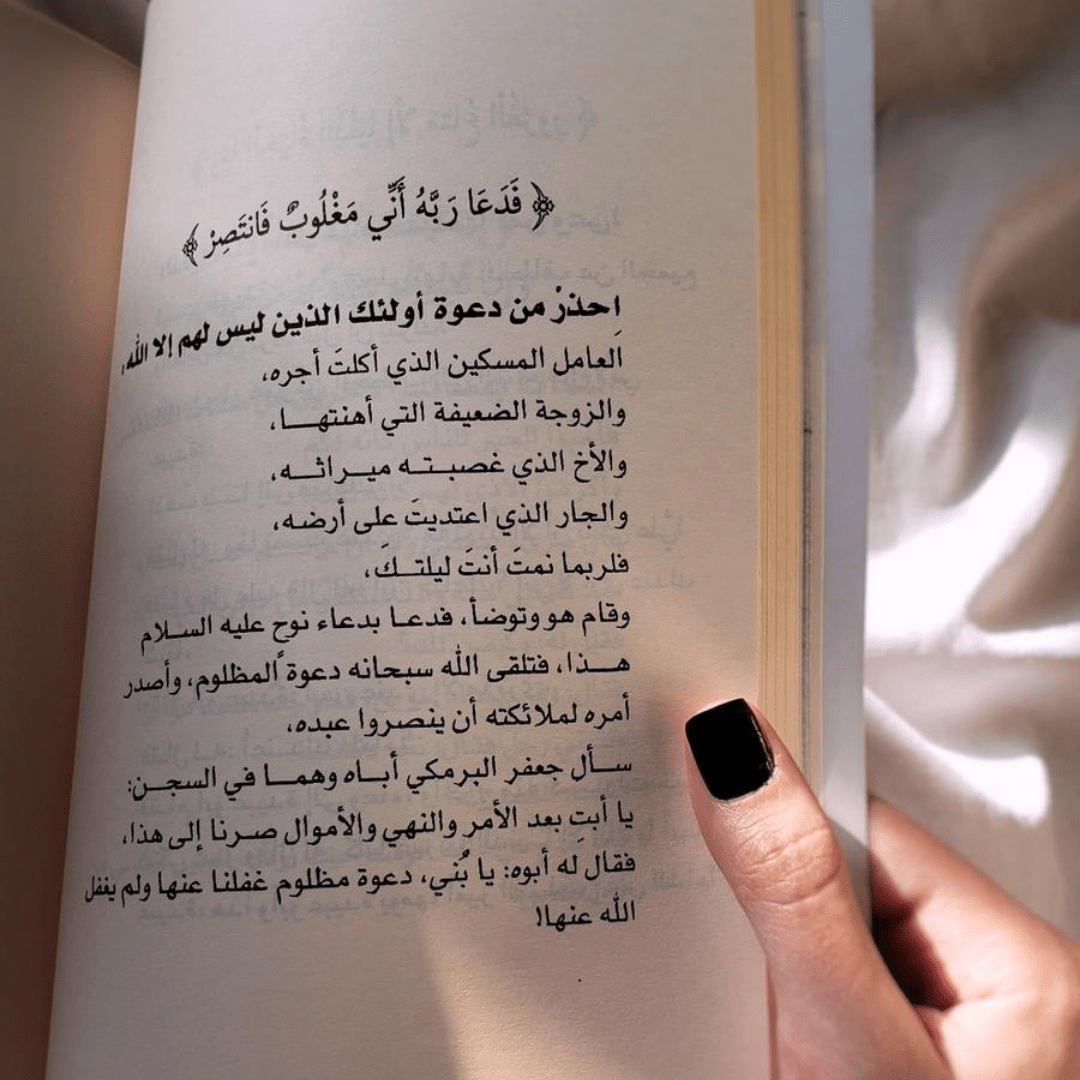 ﴿ فَدَعَا رَبَّهُ أَنِّي مَغْلُوبٌ فَانتَصِرْ ﴾
اِحذرْ من دعوة أولئك الذين ليس لهم إلا الله،
العامل المسكين الذي أكلتَ أجره،
والزوجة الضعيفة التي أهنتهـــا،
والأخ الذي غصبـتـه ميـراثـه،
والجار الذي اعتديتَ على أرضه،
فلربما نمتَ أنتَ ليلتـكَ،
وقام هو وتوضأ، فدعـا بدعاء نوحٍ عليه السـلام
هـــذا، فتلقى الله سبحانه دعوة المظلوم، وأصدر
أمره لملائكته أن ينصروا عبده،
ســأل جعفر البرمكي أبـاه وهمـا في السجـن:
يا أبتِ بعد الأمر والنهي والأموال صـرنا إلى هذا،
فقال له أبوه: يا بُني، دعوة مظلوم غفلنا عنها ولم يغفل
الله عنها!